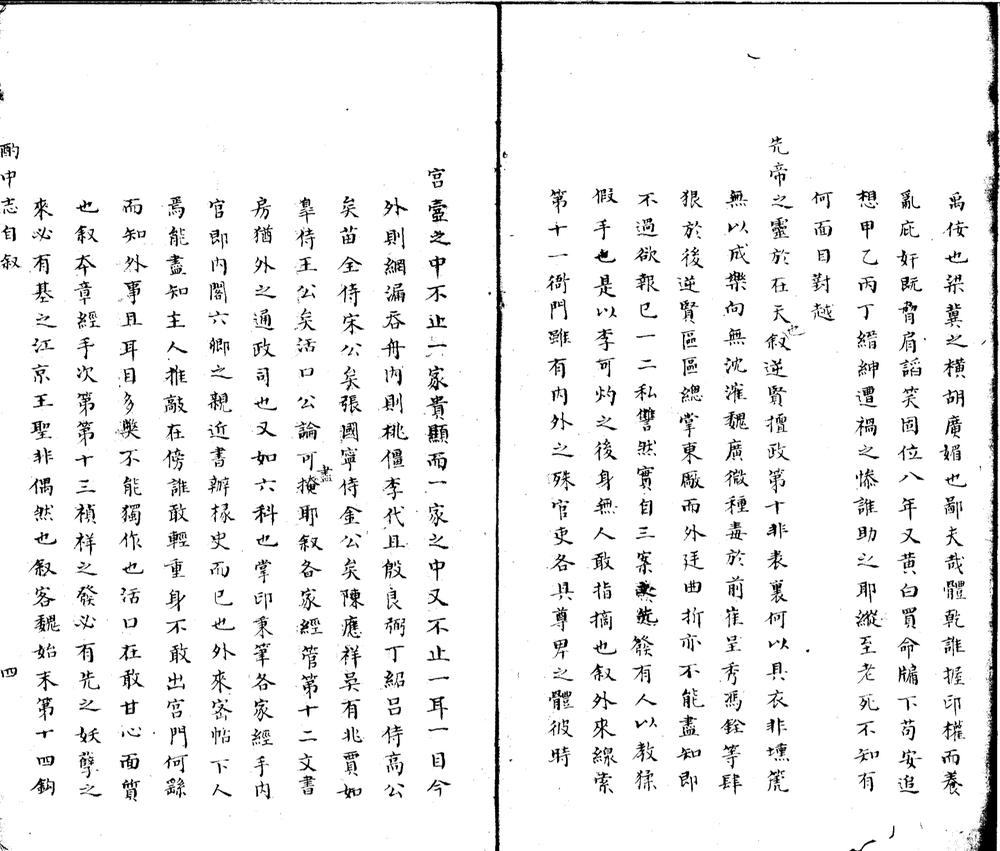 禹侫也梁冀之横胡廣媚也鄙夫哉體乾誰握印權而養
亂庇奸既脅肩謟笑固位八年又黄白買命牖下苟安追
想甲乙丙丁縉紳遭禍之慘誰助之耶縱至老死不知有
何面目對越
先帝之靈於在天也叙逆賢擅政第十非表裏何以具衣非壎箎
無以成樂向無沈㴶魏廣微種毒於前崔呈秀馮銓等肆
狠於後逆賢區區總掌東厰而外廷曲折亦不能盡知即
不過欲報已一二私讐然實自三案發有人以教猱
假手也是以李可灼之後身無人敢指摘也叙外來線索
第十一衙門雖有内外之殊官吏各具尊卑之體彼時
宫壼之中不止一家貴顯而一家之中又不止一耳一目今
外則網漏吞舟内則桃僵李代且殷良弼丁紹吕侍高公
矣苗全侍宋公矣張國寧侍金公矣陳應祥吴有兆賈如
臯侍王公矣活口公論可盡掩耶叙各家經管第十二文書
房猶外之通政司也又如六科也掌印秉筆各家經手内
官即内閣六卿之親近書辦椽史而已也外來密帖下人
焉能盡知主人推敲在傍誰敢輕重身不敢出宫門何繇
而知外事且耳目多獘不能獨作也活口在敢甘心面質
也叙本章經手次第第十三禎祥之發必有先之妖孽之
來必有基之江京王聖非偶然也叙客魏始末第十四鈎
酌中志自叙
四